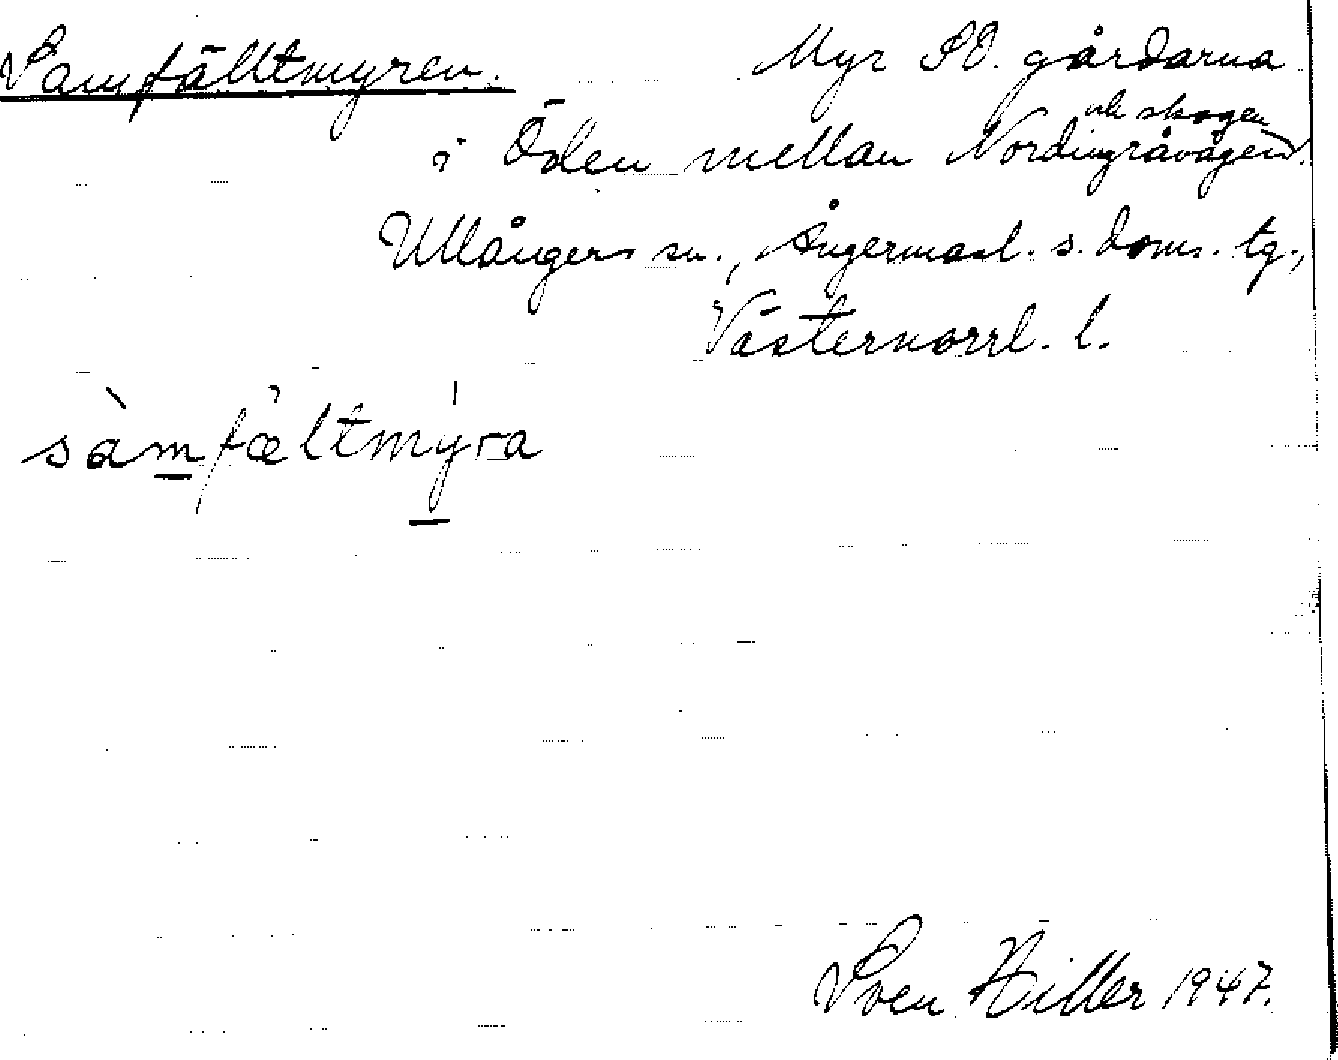 Samfälltmyren. Myr SO. gårdarna
i Öden mellan Nordingråvägen och skogen.
Ullångers sn., Ångermanl. s. doms. tg.,
Västernorrl. l.
sàmfæ̀ltmýra
Sven Hiller 1947.